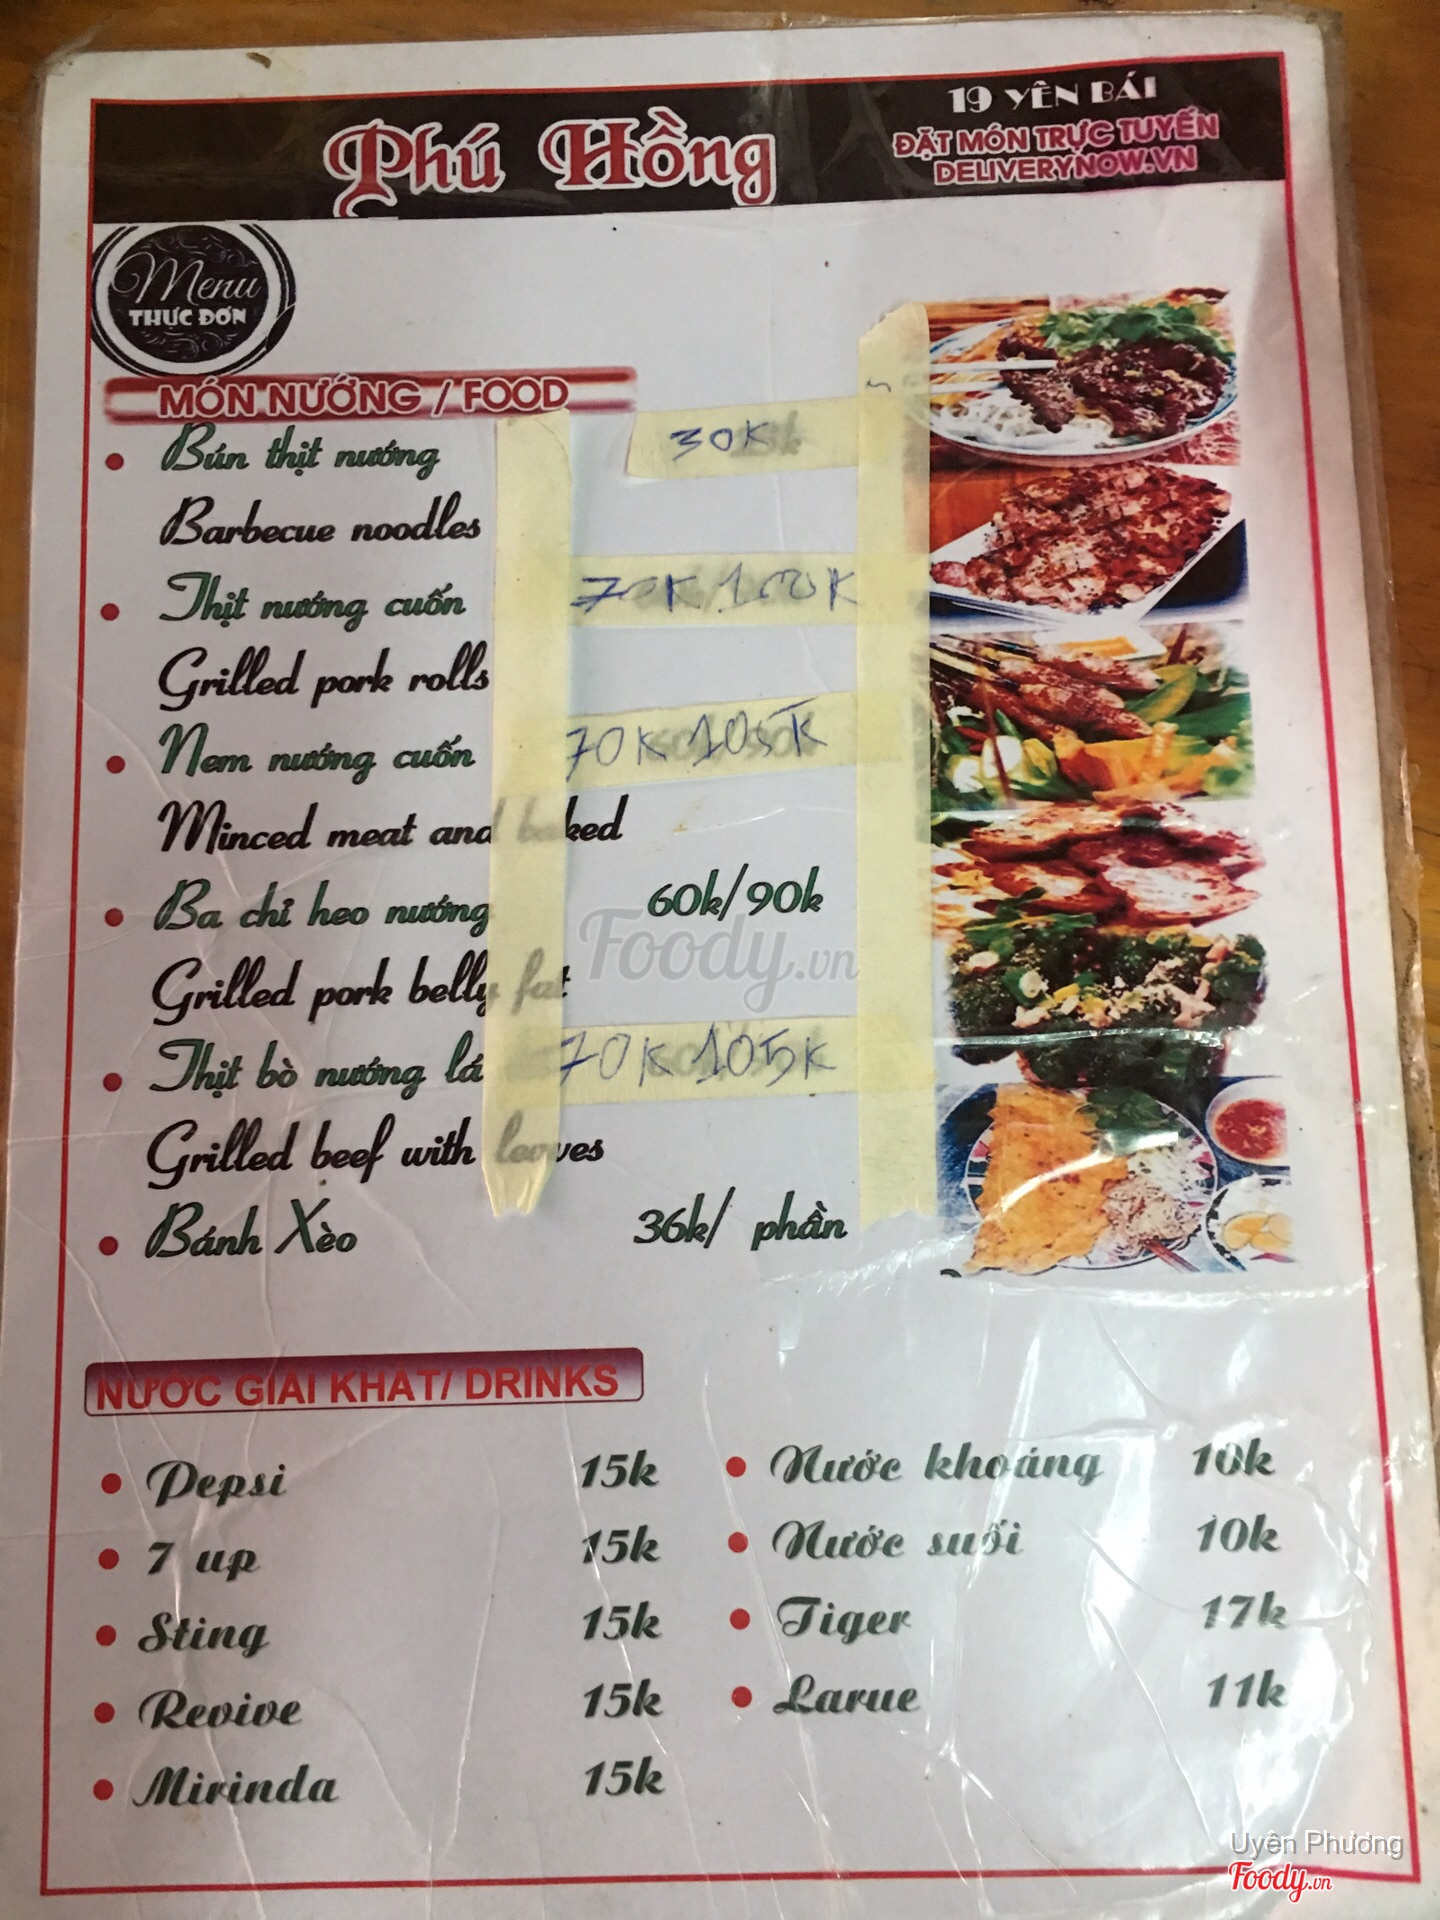 Phú Hồng
19 YÊN BÁI
ĐẶT MÓN TRỰC TUYẾN
DELIVERYNOW.VN
Menu
THỰC ĐƠN
MÓN NƯỚNG / FOOD
Bún thịt nướng 30K
Barbecue noodles
Thịt nướng cuốn 70K/100K
Grilled pork rolls
Nem nướng cuốn 70K 105K
Minced meat and baked
Ba chỉ heo nướng 60k/90k
Grilled pork belly fat
Thịt bò nướng lá 70K 105K
Grilled beef with leaves
Bánh Xèo 36k/ phần
NƯỚC GIẢI KHÁT/ DRINKS
Pepsi 15k
7 up 15k
Sting 15k
Revive 15k
Mirinda 15k
Nước khoáng 10k
Nước suối 10k
Tiger 17k
Larue 11k
Foody.vn
Uyên Phương
Foody.vn